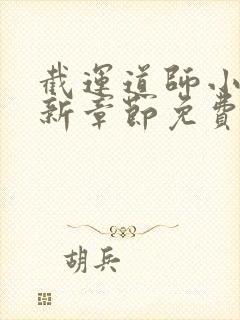 截運道師小
新章節免費
胡兵